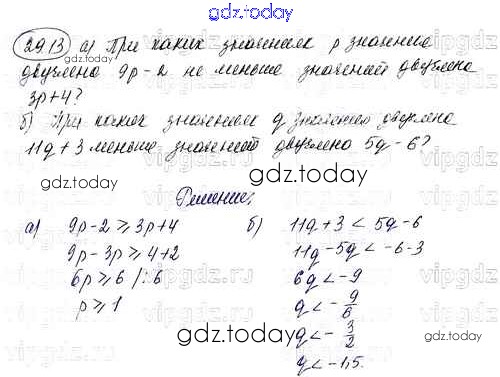 gdz.today
2913 а) При каких значениях p значение
двучлена 9p-2 не меньше значений двучлена
3p+4?
gdz.today
б) При каких значениях q значение двучлена
11q+3 меньше значений двучлена 5q-6?
gdz.today gdz.today
Решение:
а) 9p-2 ⩾ 3p+4 б) 11q+3 < 5q-6
9p-3p ⩾ 4+2 11q-5q < -6-3
6p ⩾ 6 /:6 6q < -9
p ⩾ 1 q < -9/6
gdz.today
q < -3/2
q < -1,5.
gdz.today